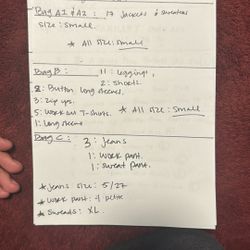 Bag A1 & A2 : 17 Jackets & sweaters
Size: Small.
* All size: Small
Bag B : 11: leggings,
2: shorts.
8: Button long sleeves.
3: zip ups.
5: Workout T-shirts. * All size: Small
1: long sleeve
Bag C : 3: Jeans
1: Work pant.
1: Sweat pant.
* Jeans size: 5/27
* Work pant: 4 petite
* Sweats: XL.